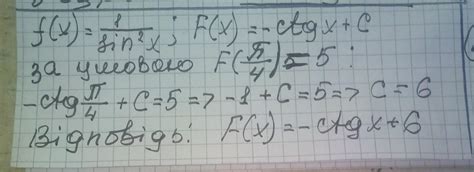 f(x) = 1/sin²x; F(x) = -ctg x + C
за умовою F(π/4) = 5 :
-ctg π/4 + C = 5 => -1 + C = 5 => C = 6
Відповідь: F(x) = -ctg x + 6